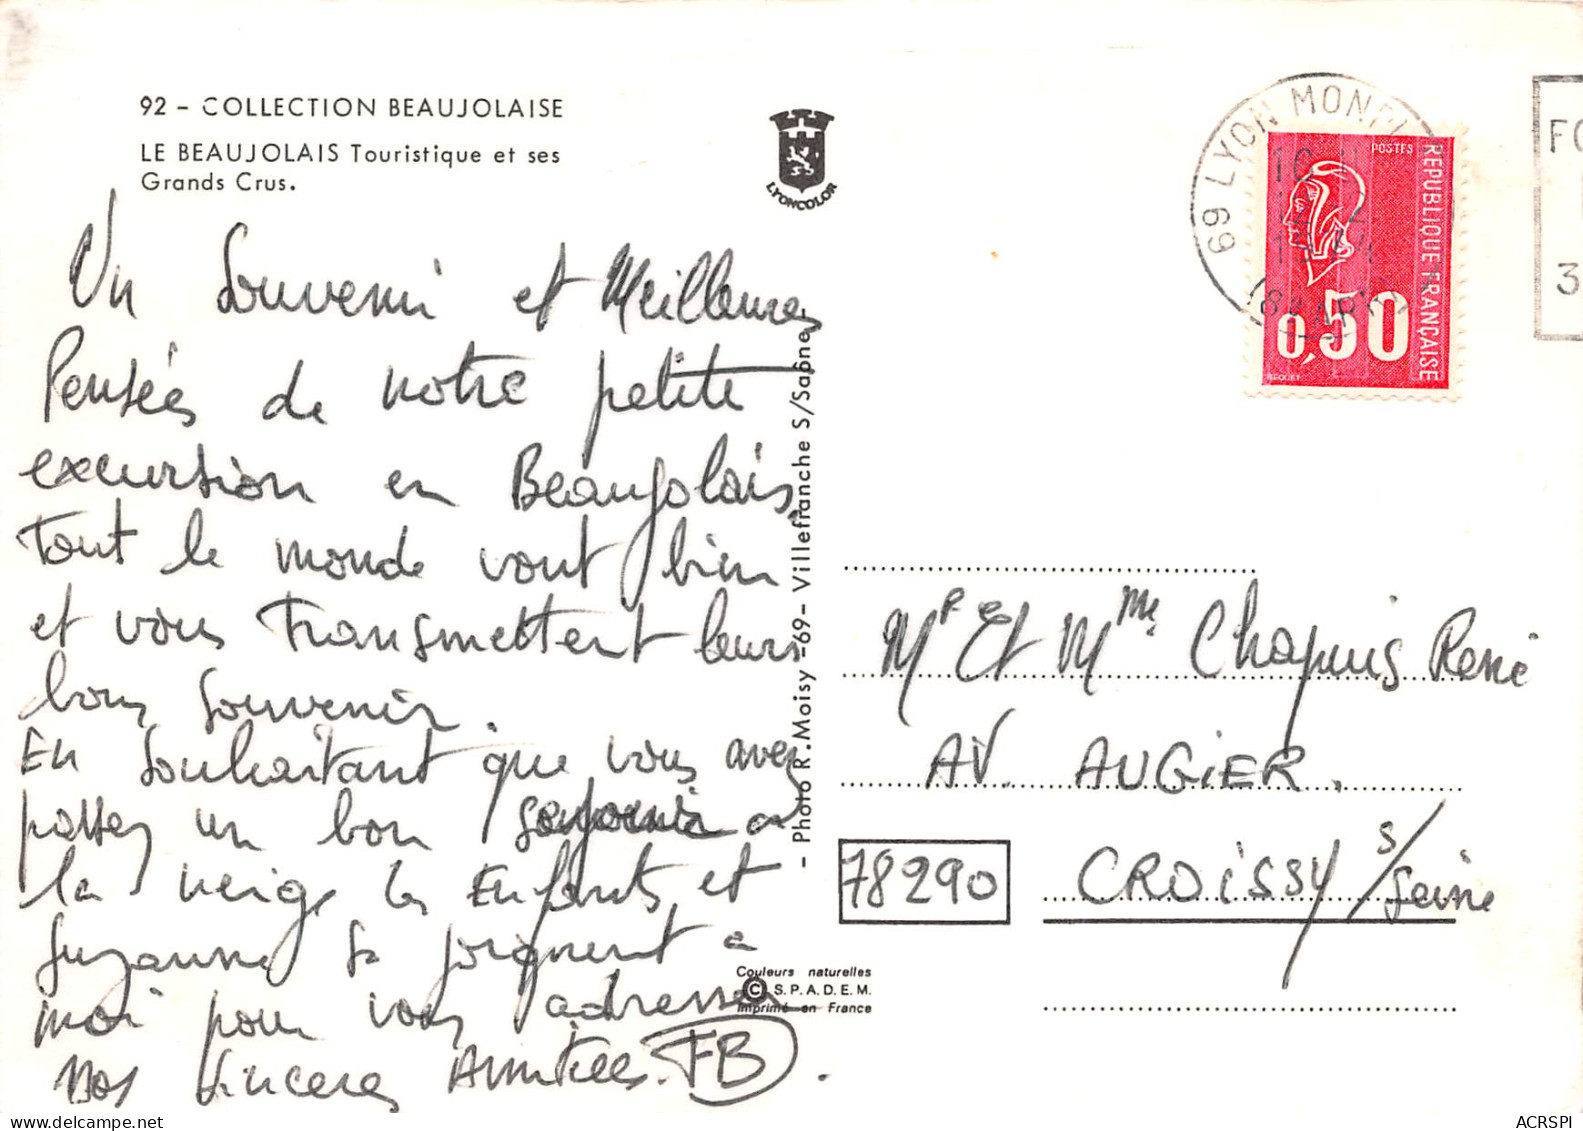 92 - COLLECTION BEAUJOLAISE
LE BEAUJOLAIS Touristique et ses
Grands Crus.
LYONCOLOR
Un Souvenir et Meilleures
Pensées de notre petite
excursion en Beaujolais,
Tout le monde vont bien
et vous Transmettent leurs
bons souvenir.
En souhaitant que vous avez
passez un bon
la neige les Enfants et
Suzanne se joignent a
moi pour vous adresser
Nos Sincères Amitiées. FB.
- Photo R. Moisy - 69 - Villefranche S/Saône -
Couleurs naturelles
© S.P.A.D.E.M.
Imprimé en France
69 LYON MONPL
POSTES
REPUBLIQUE FRANÇAISE
0,50
BEQUET
FO
3
Mr Et Mme Chapuis René
AV. AUGIER.
78290 CROISSY s/Seine
ACRSPI